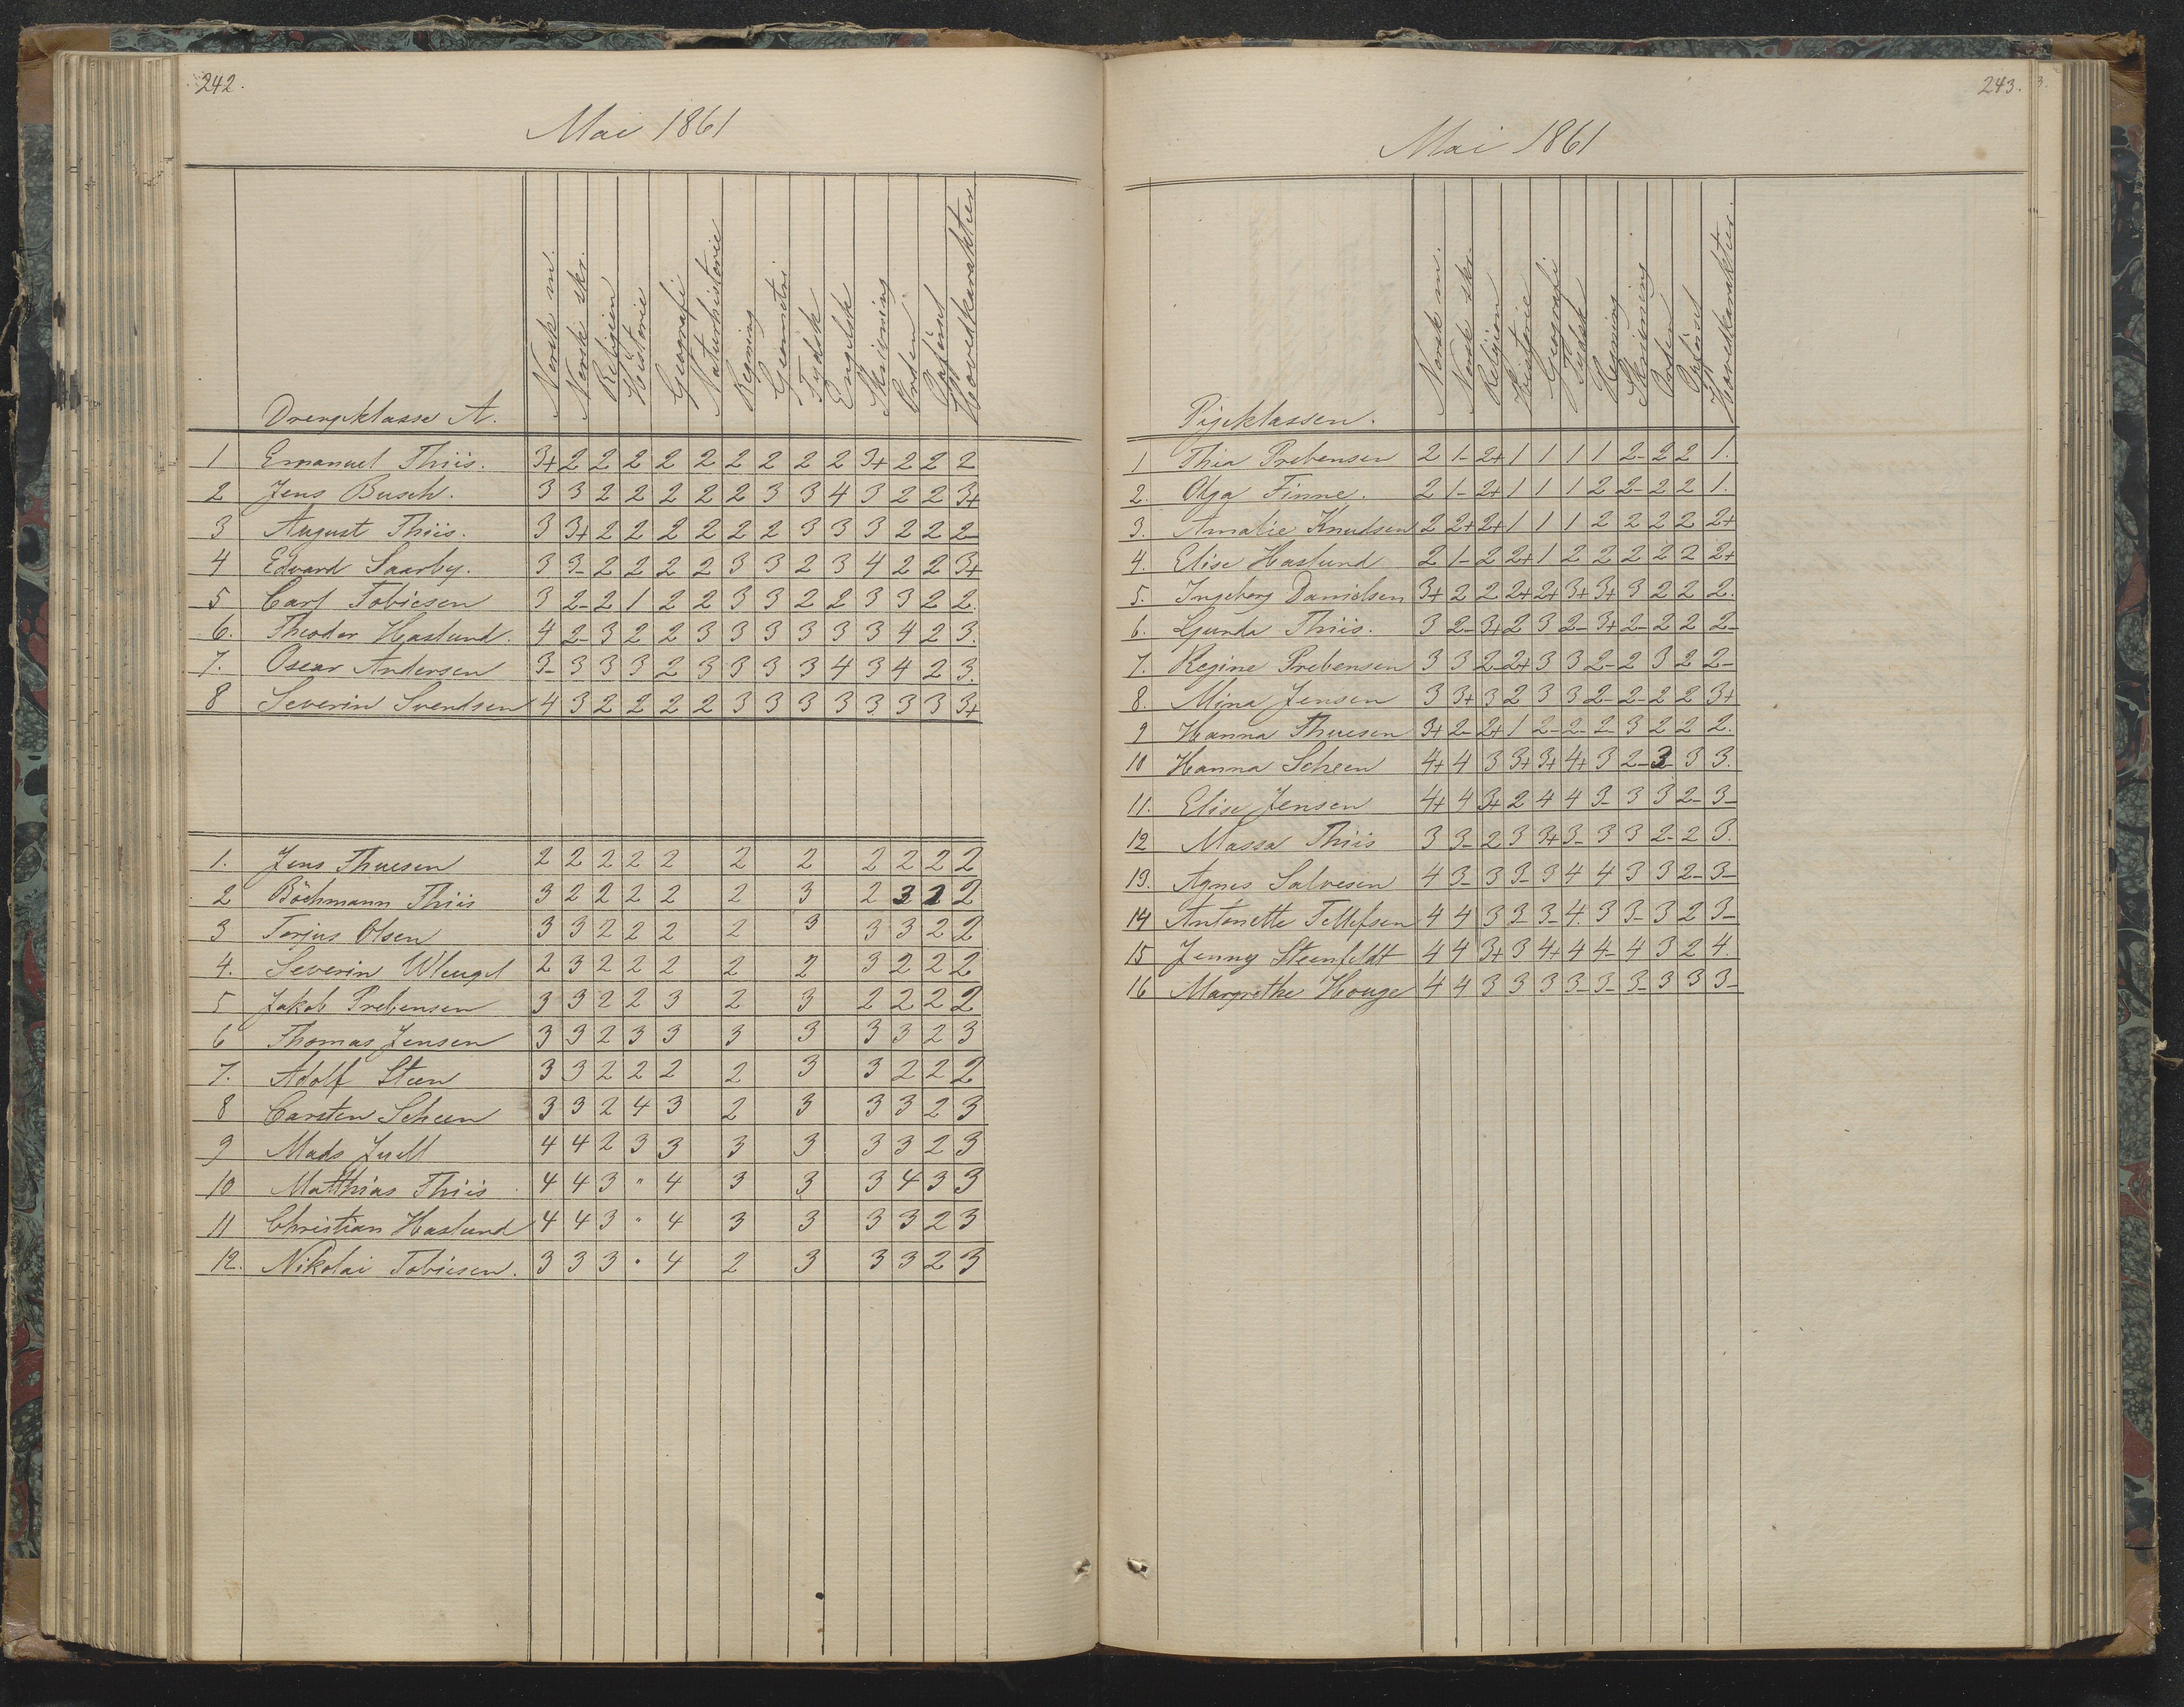 242.
Mai 1861
Drengeklasse A. Norsk m. Norsk skr. Religion Historie Geografi Naturhistorie Regning Geometri Tydsk Engelsk Skrivning Orden Opførsel Hovedkarakter
1 Emanuel Thiis. 3+ 2 2 2 2 2 2 2 2 2 3+ 2 2 2
2 Jens Busch. 3 3 2 2 2 2 2 3 3 4 3 2 2 3+
3 August Thiis. 3 3+ 2 2 2 2 2 2 3 3 3 2 2 2-
4 Edvard Saarby. 3 3- 2 2 2 2 3 3 2 3 4 2 2 3+
5 Carl Tobiesen 3 2- 2 1 2 2 3 3 2 2 3 3 2 2.
6. Theodor Haslund. 4 2- 3 2 2 3 3 3 3 3 3 4 2 3.
7. Oscar Andersen 3- 3 3 3 2 3 3 3 3 4 3 4 2 3.
8 Severin Svendsen 4 3 2 2 2 2 3 3 3 3 3 3 3 3+
1. Jens Thuesen 2 2 2 2 2 2 2 2 2 2 2
2 Böchmann Thiis 3 2 2 2 2 2 3 2 3 2 2
3 Torjus Olsen 3 3 2 2 2 2 3 3 3 2 2
4. Severin Wleugel 2 3 2 2 2 2 2 3 2 2 2
5 Jakob Prebensen 3 3 2 2 3 2 3 2 2 2 2
6 Thomas Jensen 3 3 2 3 3 3 3 3 3 2 3
7. Adolf Steen 3 3 2 2 2 2 3 3 2 2 2
8 Carsten Scheen 3 3 2 4 3 2 3 3 3 2 3
9 Mads Juell 4 4 2 3 3 3 3 3 3 2 3
10 Matthias Thiis 4 4 3 " 4 3 3 3 4 3 3
11 Christian Haslund 4 4 3 " 4 3 3 3 3 2 3
12. Nikolai Tobiesen. 3 3 3 " 4 2 3 3 3 2 3
243.
Mai 1861
Pigeklassen. Norsk m. Norsk skr. Religion Historie Geografi Tydsk Regning Skrivning Orden Opførsel Hovedkarakter.
1 Thia Prebensen 2 1- 2+ 1 1 1 1 2- 2 2 1.
2. Olga Finne. 2 1- 2+ 1 1 1 2 2- 2 2 1.
3. Amalie Knudsen 2 2+ 2+ 1 1 1 2 2 2 2 2+
4. Elise Haslund 2 1- 2 2+ 1 2 2 2 2 2 2+
5. Ingeborg Danielsen 3+ 2 2 2+ 2+ 3+ 3+ 3 2 2 2.
6. Gunda Thiis. 3 2- 3+ 2 3 2- 3+ 2- 2 2 2-
7. Regine Prebensen 3 3 2- 2+ 3 3 2- 2 3 2 2-
8. Mina Jensen 3 3+ 3 2 3 3 2- 2- 2 2 3+
9 Hanna Thuesen 3+ 2- 2+ 1 2- 2- 2- 3 2 2 2.
10 Hanna Scheen 4+ 4 3 3+ 3+ 4+ 3 2- 3- 3 3.
11. Elise Jensen 4+ 4 3+ 2 4 4 3- 3 3 2- 3-
12 Massa Thiis 3 3- 2 3 3+ 3- 3 3 2- 2 3.
13. Agnes Salvesen 4 3- 3 3- 3 4 4 3 3 2- 3-
14 Antonette Tellefsen 4 4 3 3- 3- 4. 3 3- 3 2 3-
15 Jenny Steenfeldt 4 4 3+ 3 4+ 4 4- 4 3 2 4.
16 Margrethe Houge 4 4 3 3 3 3- 3- 3- 3 3 3-